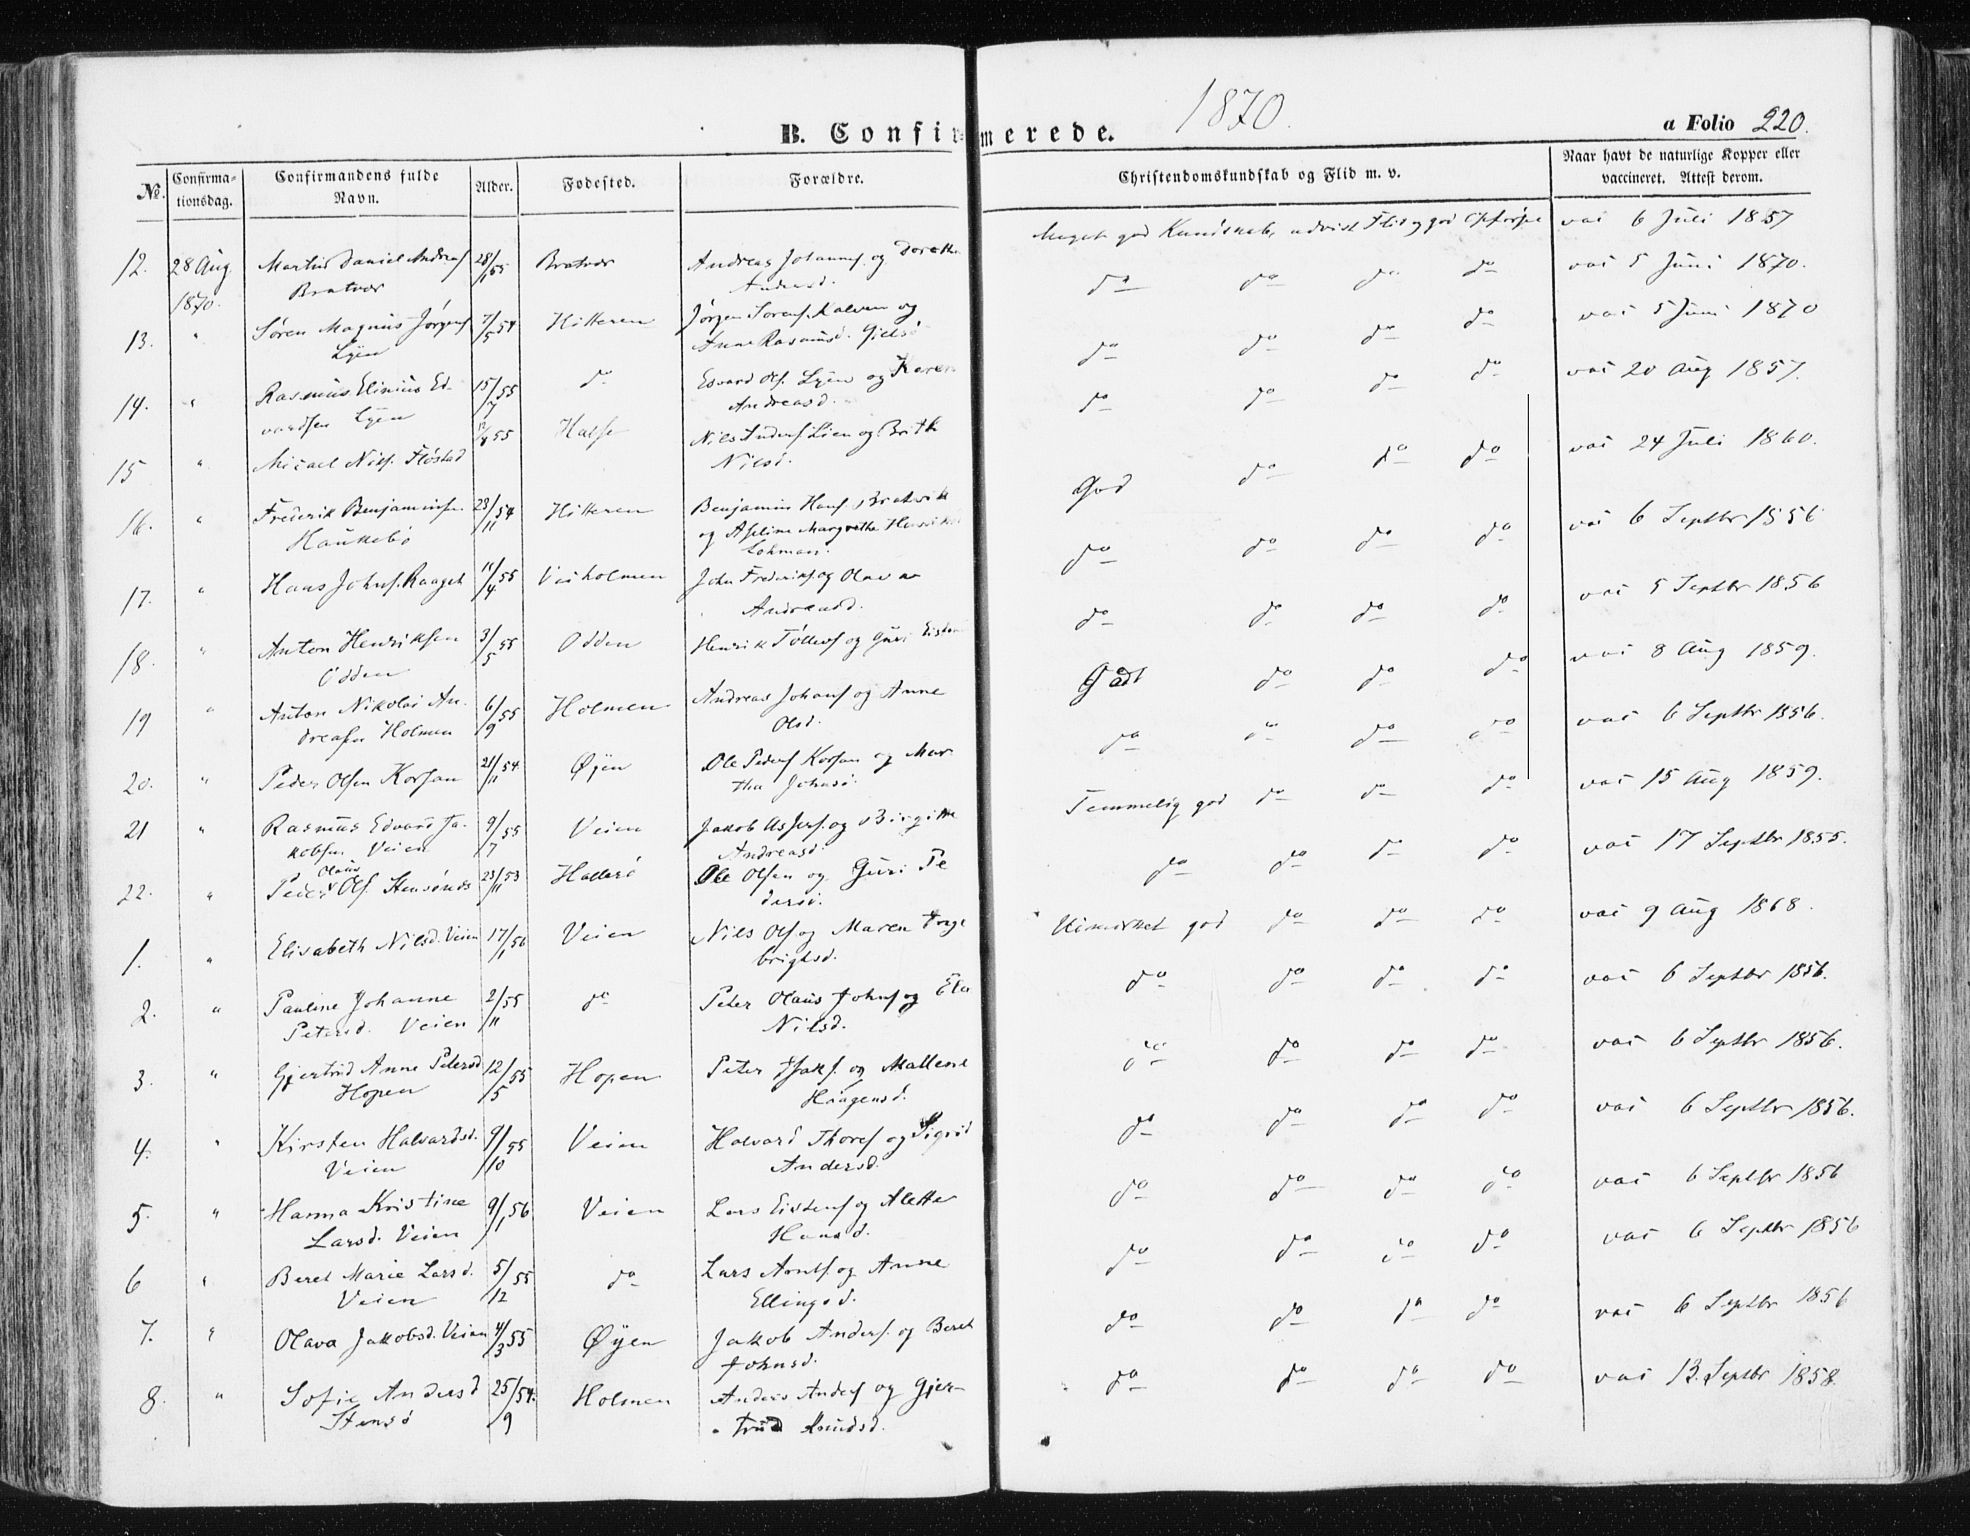 1870.
B. Confirmerede.
a Folio 220.
No.
Confirmationsdag.
Confirmandens fulde Navn.
Alder.
Fødested.
Forældre.
Christendomskundskab og Flid m. v.
Naar havt de naturlige Kopper eller vaccineret. Attest derom.
12. 28 Aug 1870. Martin Daniel Andreas Bratvær 28/1 55 Bratvær Andreas Johanns. og Dorethe Andersd. Meget god Kundskab, udvist Flid og god Opførsel vac 6 Juli 1857
13. " Søren Magnus Jørgens Lyen 7/5 54 Hitteren Jørgen Sørens. Kalven og Anne Rasmusd. do do do do vac 5 Juni 1870.
14. " Rasmus Elinius Edvardsen Lyen 15/7 55 do Edvard Ols. Lyen og Karen Andreasd. do do do do vac 5 Juni 1870
15 " Micael Nils. Flostad 12/8 55 Halse Nils Anders Lien og Brith Nilsd. do do do do vac 20 Aug 1857.
16. " Frederik Benjaminsen Haukebø 23/11 54 Hitteren Benjamin Hans. Bratvik og Margrethe Henriks Lohman. God do do do vac 24 Juli 1860.
17. " Hans Johns. Raaget 11/4 55 Veiholmen John Frederiks. og Olava Andreasd. do do do do vac 6 Septbr 1856
18. " Anton Henriksen Odden 3/5 55 Odden Henrik Tollevs og Guri do do do do vac 5 Septbr 1856
19 " Anton Nikolai Andreasen Holmen 6/9 55 Holmen Andreas Johans og Anne Olsd. Godt do do do vac 8 Aug 1859.
20. " Peder Olsen Korsan 21/11 54 Øyen Ole Peders Korsan og Martha Johnsd. do do do do vac 6 Septbr 1856.
21 " Rasmus Edvard Jakobsen Veien 9/7 55 Veien Jakob Assers. og Birgitte Andreasd. Temmelig god do do do vac 15 Aug 1859.
22. " Peder Olaus Ols. Stensønes 23/11 53 Hallerø Ole Olsen og Guri Pedersd. do do do do vac 17 Septbr 1855.
1. " Elisabeth Nilsd. Veien 17/1 56 Veien Nils Ols og Maren Ingebrigtsd. Udmærket god do do do vac 9 Aug 1868.
2. " Pauline Johanne Petersd. Veien 2/11 55 do Peter Olaus Johns og Ela Nilsd. do do do do vac 6 Septbr 1856.
3. " Gjertrud Anne Petersd Hopen 12/5 55 Hopen Peter Isaks. og Mallene Haagensd. do do do do vac 6 Septbr 1856.
4. " Kirsten Halvardsd. Veien 9/10 55 Veien Halvard Thores og Sigrid Andersd. do do do do vac 6 Septbr 1856.
5. " Hanna Kristine Larsd. Veien 9/1 56 Veien Lars Eistens og Alette Hansd. do do do do vac 6 Septbr 1856
6 " Beret Marie Larsd. Veien 5/12 55 do Lars Arnts. og Anne Ellingsd. do do do do vac 6 Septbr 1856
7. " Olava Jakobsd. Veien 4/3 55 Øyen Jakob Anders. og Beret Johnsd. do do do do vac 6 Septbr 1856
8. " Sofie Andersd Stensø 25/9 54. Holmen Anders Anders og Gjertrud Knudsd. do do do do vac 13. Septbr 1858.